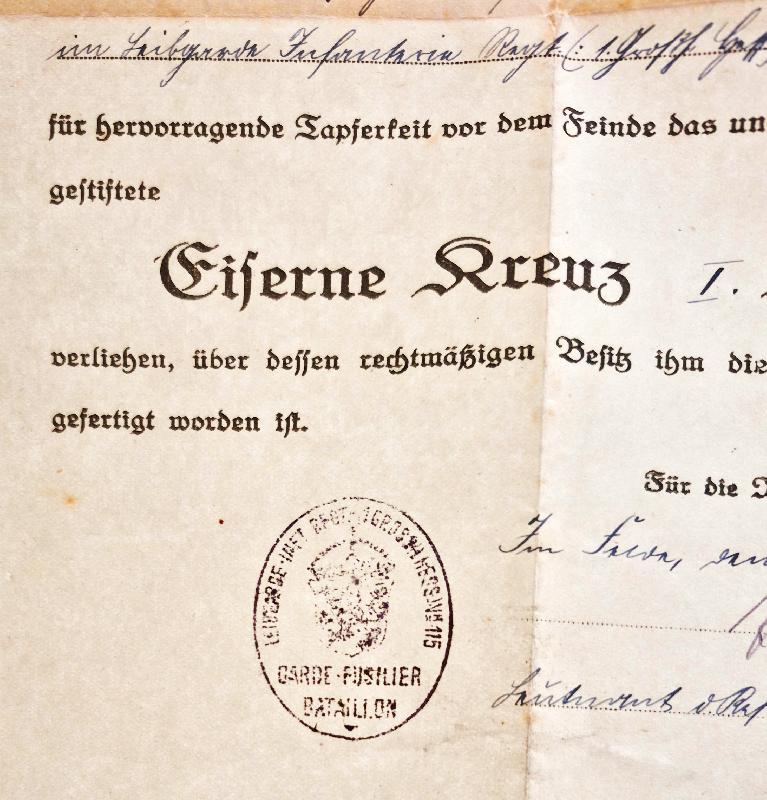 im Leibgarde Infanterie Regt (: 1. Großh. Heff
für hervorragende Tapferkeit vor dem Feinde das un
gestiftete
Eiserne Kreuz I.
verliehen, über dessen rechtmäßigen Besitz ihm die
gefertigt worden ist.
Für die
Im Felde, den
Leutnant d. Res
LEIBGARDE-INFT. REGT. 1 GROSSH. HESS. No 115
GARDE-FÜSILIER
BATAILLON